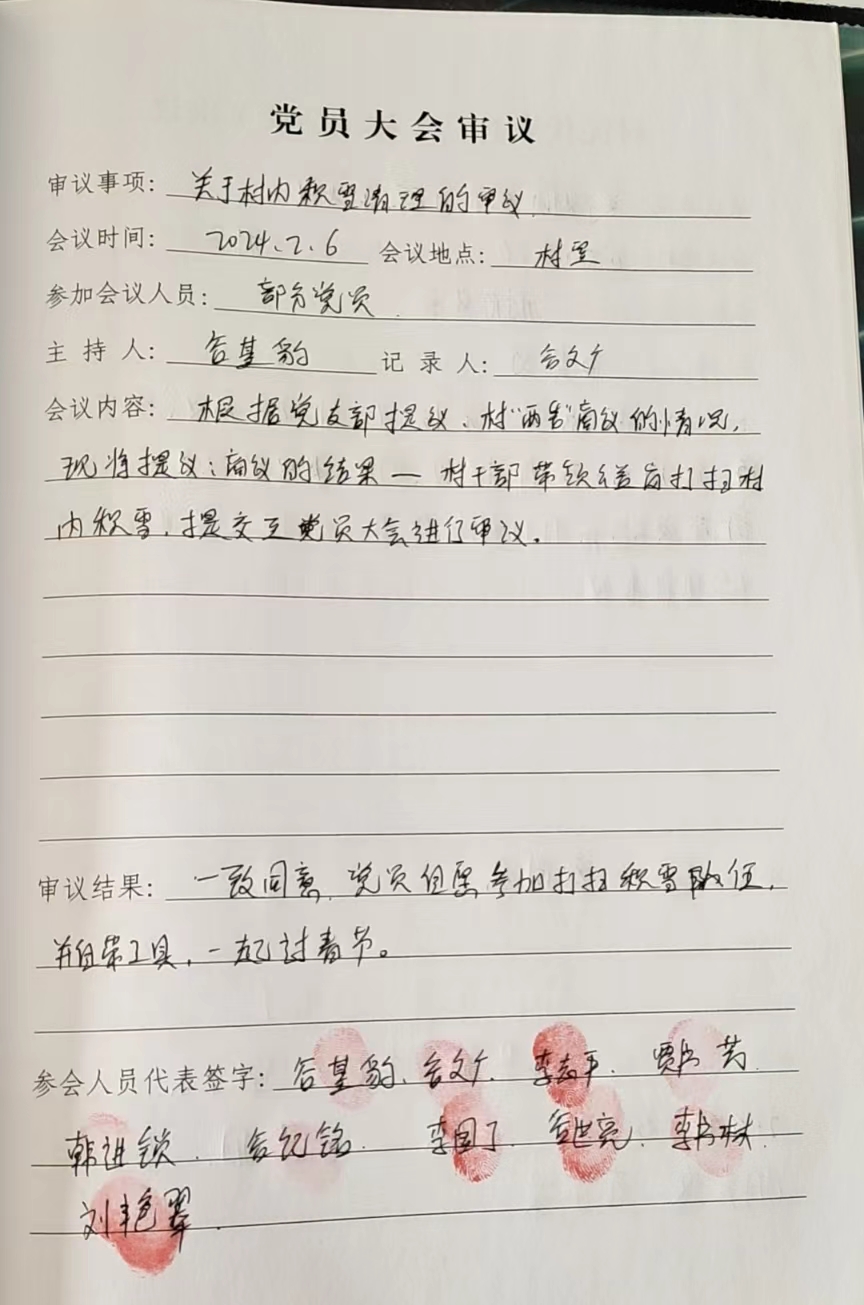 党员大会审议
审议事项：关于村内积雪清理的审议.
会议时间：2024.2.6 会议地点：村里
参加会议人员：部分党员.
主持人：谷基豹 记录人：谷文广
会议内容：根据党支部提议、村“两委”商议的情况，
现将提议；商议的结果—村干部带领公益岗打扫村
内积雪，提交至党员大会进行审议。
审议结果：一致同意，党员自愿参加打扫积雪队伍，
并自带工具，一起过春节。
参会人员代表签字：谷基豹、谷文广、李志平.
韩进锁. 谷纪铭. 李国了. 李书林.
刘艳翠.